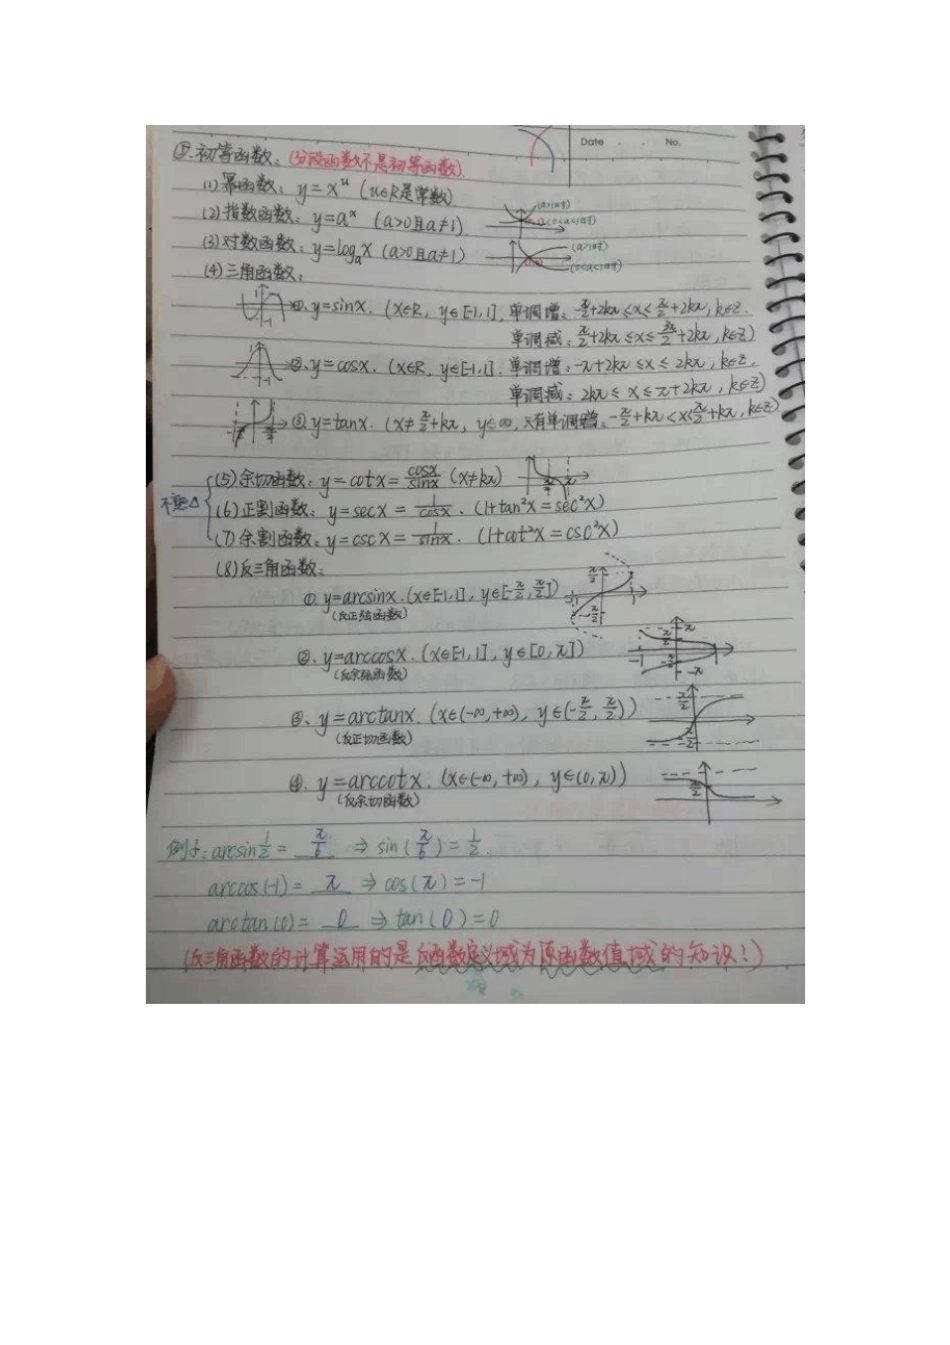 Date . . No.
⑤.初等函数:(分段函数不是初等函数).
(1)幂函数: y=xᵘ (u∈R是常数)
(2)指数函数: y=aˣ (a>0且a≠1). (a>1时) (0<a<1时)
(3)对数函数: y=logₐx (a>0且a≠1) (a>1时) (0<a<1时)
(4)三角函数:
①.y=sinx. (x∈R, y∈[-1,1], 单调增: -π/2+2kπ≤x≤π/2+2kπ, k∈Z.
单调减: π/2+2kπ≤x≤3π/2+2kπ, k∈Z)
②.y=cosx. (x∈R, y∈[-1,1]. 单调增: -π+2kπ≤x≤2kπ, k∈Z.
单调减: 2kπ≤x≤π+2kπ, k∈Z)
③y=tanx. (x≠π/2+kπ, y∈∞, 只有单调增. -π/2+kπ<x<π/2+kπ, k∈Z)
(5)余切函数: y=cotx=cosx/sinx (x≠kπ)
不熟△ (6)正割函数: y=secx=1/cosx. (1+tan²x=sec²x)
(7)余割函数: y=cscx=1/sinx. (1+cot²x=csc²x)
(8)反三角函数:
①.y=arcsinx.(x∈[-1,1], y∈[-π/2,π/2])
(反正弦函数)
②.y=arccosx.(x∈[-1,1], y∈[0,π])
(反余弦函数)
③、y=arctanx.(x∈(-∞,+∞), y∈(-π/2,π/2))
(反正切函数)
④.y=arccotx.(x∈(-∞,+∞), y∈(0,π))
(反余切函数)
例子: arcsin1/2=π/6 ⇒ sin(π/6)=1/2.
arccos(-1)=π ⇒ cos(π)=-1
arctan(0)=0 ⇒ tan(0)=0
(反三角函数的计算运用的是反函数定义域为原函数值域的知识!)